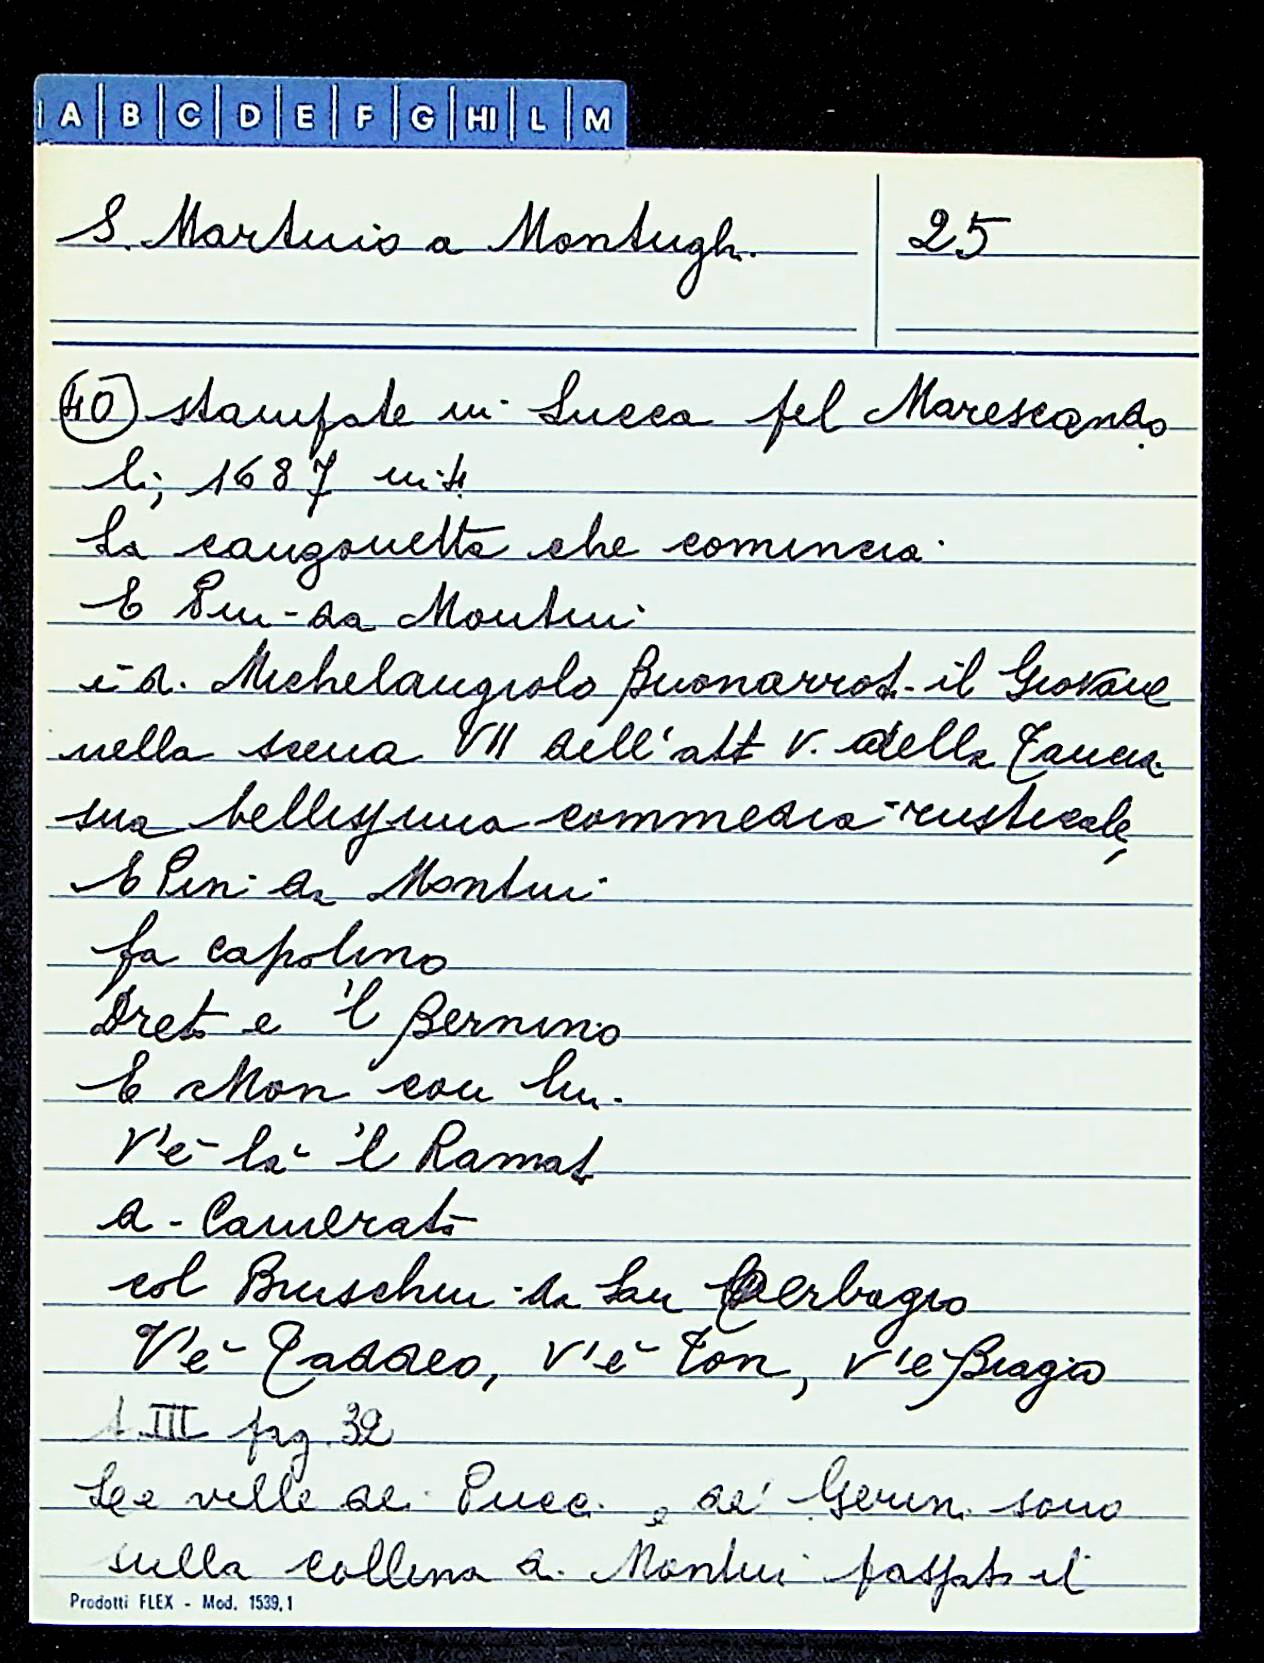 A B C D E F G HI L M
S. Martino a Montughi
25
40 stampate in Lucca pel Marescando
li, 1687 in 4
La canzonetta che comincia
E Pin da Montui
è di Michelangiolo Buonarroti il Giovane
nella scena VII dell'att V. della Tancia
sua bellissima commedia rusticale,
E Pin da Montui
fa capolino
Dreto e 'l Bernino
E Mon con lui
V'è là 'l Ramat
a Camerata
col Bruschin da San Cerbagio
V'è Taddeo, v'è Ton, v'è Biagio
t. III pag. 32
Le ville dei Pucci e de' Gerini sono
sulla collina di Montui passato il
Prodotti FLEX - Mod. 1539,1